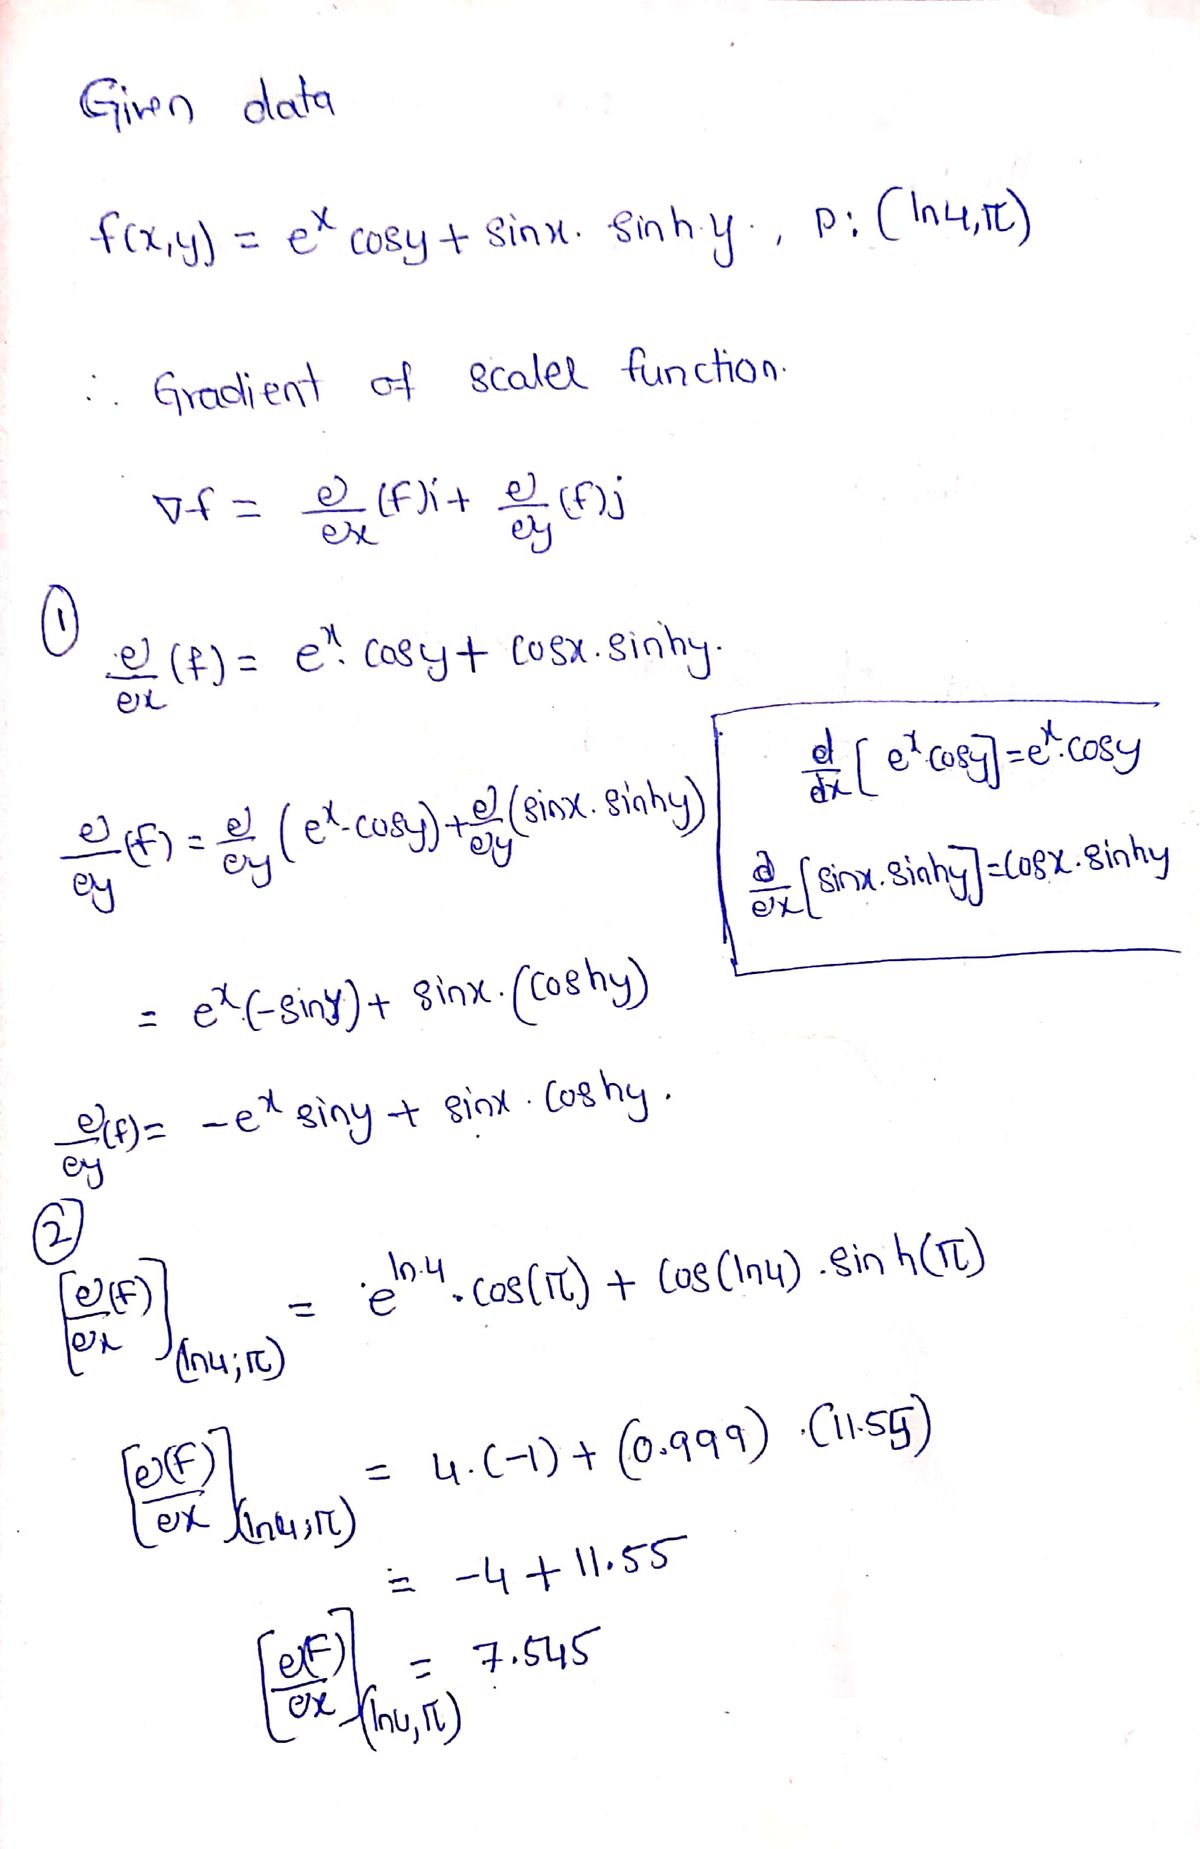 Given data
f(x,y) = e^x cosy + sinx. sinh.y., P: (ln4,π)
∴ Gradient of scaler function.
∇f = ∂/∂x (f)i + ∂/∂y (f)j
①
∂/∂x (f) = e^x. cosy + cosx.sinhy.
d/dx [e^x.cosy] = e^x.cosy
∂/∂y (f) = ∂/∂y (e^x.cosy) + ∂/∂y (sinx. sinhy)
∂/∂x [sinx.sinhy] = cosx.sinhy
= e^x.(-siny) + sinx.(coshy)
∂/∂y (f) = -e^x siny + sinx. coshy.
②
[∂(f)/∂x](ln4;π) = e^ln.4 . cos(π) + cos(ln4) . sinh(π)
[∂(f)/∂x](ln4;π) = 4.(-1) + (0.999) .(11.55)
= -4 + 11.55
[∂(f)/∂x](ln4,π) = 7.545